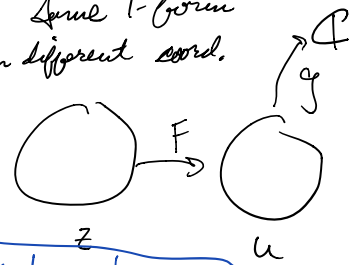 Same 1-form
in different coord.
ℂ
g
F
z
u